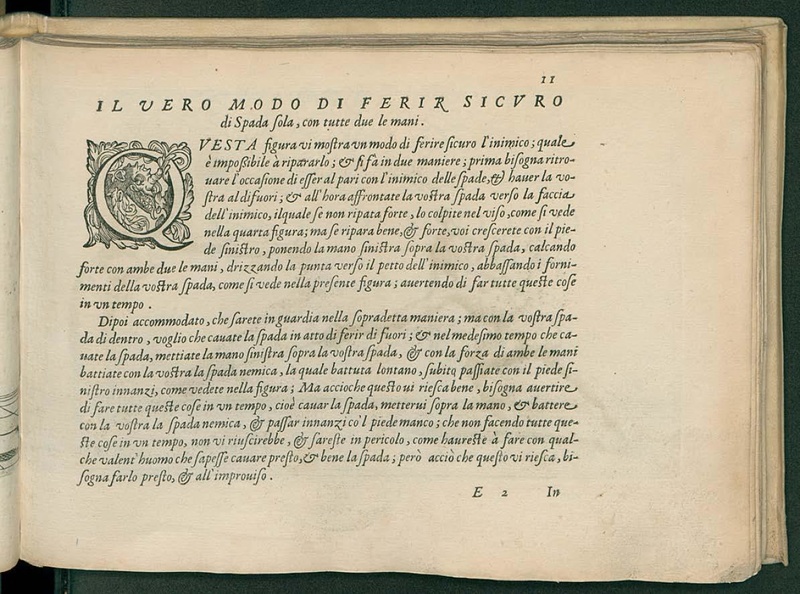 11
IL VERO MODO DI FERIR SICVRO
di Spada ſola, con tutte due le mani.
QVESTA figura vi moſtra vn modo di ferire ſicuro l'inimico; quale
è impoßibile à ripararlo; & ſi fa in due maniere; prima biſogna ritro-
uare l'occaſione di eſſer al pari con l'inimico delle ſpade, & hauer la vo-
ſtra al difuori; & all'hora affrontate la voſtra ſpada verſo la faccia
dell'inimico, ilquale ſe non ripata forte, lo colpite nel viſo, come ſi vede
nella quarta figura; ma ſe ripara bene, & forte, voi creſcerete con il pie-
de ſiniſtro, ponendo la mano ſiniſtra ſopra la voſtra ſpada, calcando
forte con ambe due le mani, drizzando la punta verſo il petto dell'inimico, abbaſſando i forni-
menti della voſtra ſpada, come ſi vede nella preſente figura; auertendo di far tutte queſte coſe
in vn tempo.
Dipoi accommodato, che ſarete in guardia nella ſopradetta maniera; ma con la voſtra ſpa-
da di dentro, voglio che cauate la ſpada in atto di ferir di fuori; & nel medeſimo tempo che ca-
uate la ſpada, mettiate la mano ſiniſtra ſopra la voſtra ſpada, & con la forza di ambe le mani
battiate con la voſtra la ſpada nemica, la quale battuta lontano, ſubito paſſiate con il piede ſi-
niſtro innanzi, come vedete nella figura; Ma accioche queſto ui rieſca bene, biſogna auertire
di fare tutte queſte coſe in vn tempo, cioè cauar la ſpada, metterui ſopra la mano, & battere
con la voſtra la ſpada nemica, & paſſar innanzi co'l piede manco; che non facendo tutte que-
ſte coſe in vn tempo, non vi riuſcirebbe, & ſareſte in pericolo, come haureſte à fare con qual-
che valent'huomo che ſapeſſe cauare preſto, & bene la ſpada; però acciò che queſto vi rieſca, bi-
ſogna farlo preſto, & all'improuiſo.
E 2 In